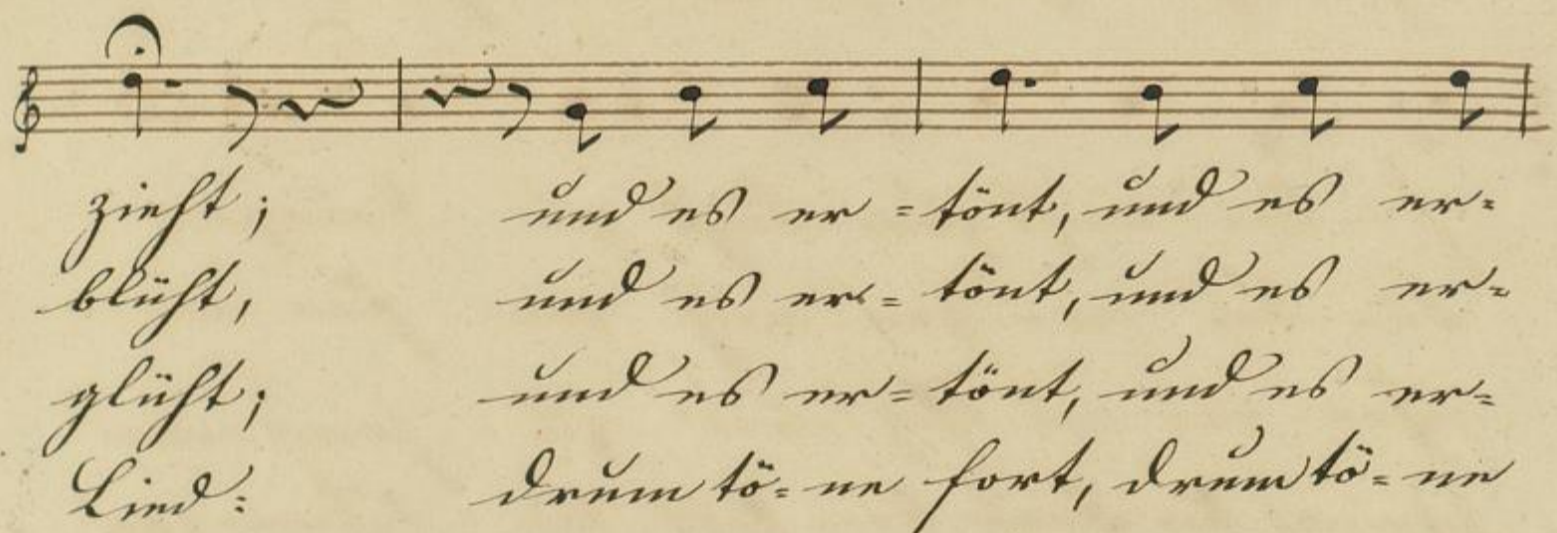 zieht; und es er = tönt, und es er=
blüht, und es er = tönt, und es er=
glüht; und es er = tönt, und es er=
Lied: drum tö = ne fort, drum tö = ne